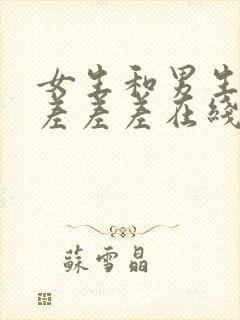 女生和男生
差差差在线
蘇雪晶